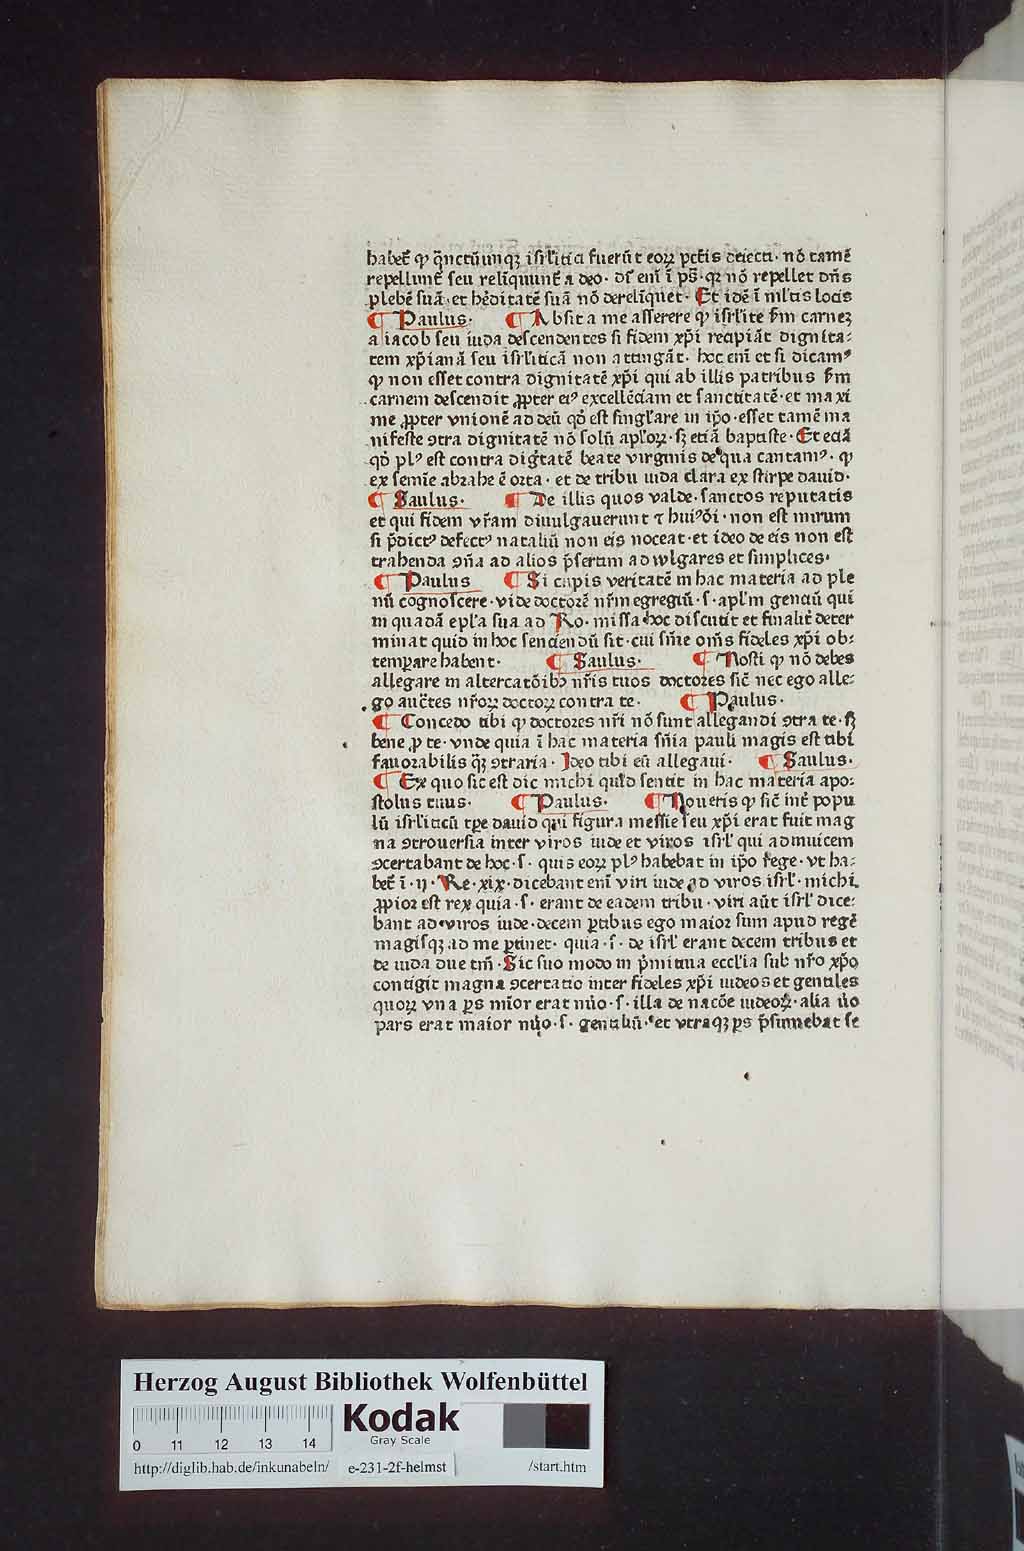 habet̄ ꝙ q̄nctūunqꝫ iſrĺitici fuerūt eoꝝ pctīs deiecti· nō tamē
repellunt̄ ſeu relinquunt̄ a deo· dr̄ em̄ ī ps̄· qꝛ nō repellet dn̄s
plebē ſuā· et hēditatē ſuā nō derelīquet· Et idē ī ml̓tis locis
¶ Paulus· ¶ Abſit a me aſſerere ꝙ iſrĺite ẜm carneꝫ
a iacob ſeu iuda deſcendentes ſi fidem xp̄i recipiāt dignita⸗
tem xp̄ianā ſeu iſrĺiticā non attingāt· hoc em̄ et ſi dicamꝰ
ꝙ non eſſet contra dignitatē xp̄i qui ab illis patribus ẜm
carnem deſcendit ꝓpter eiꝰ excellētiam et ſanctitatē· et maxi
me ꝓpter vnionē ad deū qď eſt ſingl̓are in ip̄o· eſſet tamē ma
nifeſte ꝯtra dignitatē nō ſolū apl̓oꝝ· ſꝫ etiā baptiſte· Et etiā
qď plꝰ eſt contra dig̓tatē beate virginis de qua cantamꝰ· ꝙ
ex ſemīe abrahe ē orta· et de tribu iuda clara ex ſtirpe dauid·
¶ Saulus· ¶ De illis quos valde· ſanctos reputatis
et qui fidem vr̄am diuulgauerunt ⁊ huiꝰōi· non eſt mirum
ſi p̄dictꝰ defectꝰ nataliū non eis noceat· et ideo de eis non eſt
trahenda ꝯn̄a ad alios p̄ſertim ad wlgares et ſimplices·
¶ Paulus ¶ Si cupis veritatē in hac materia ad ple
nū cognoſcere· vide doctorē nr̄m egregiū· ſ· apl̓m gentiū qui
in quadā epl̓a ſua ad Ro· miſſa hoc diſcutit et finalit̄ deter
minat quid in hoc ſenciendū ſit· cui ſnīe om̄s fideles xp̄i ob⸗
temꝑare habent· ¶ Saulus· ¶ Noſti ꝙ nō debes
allegare in altercatōibꝫ nr̄is tuos doctores ſic̄ nec ego alle⸗
go auct̄es nr̄oꝝ doctoꝝ contra te· ¶ Paulus·
¶ Concedo tibi ꝙ doctores nr̄i nō ſunt allegandi ꝯtra te· ſꝫ
bene ꝓ te· vnde quia ī hac materia ſn̄ia pauli magis eſt tibi
fauorabilis q̄ꝫ ꝯtraria· Ideo tibi eū allegaui· ¶ Saulus·
¶ Ex quo ſic eſt dic michi quid ſentit in hac materia apo⸗
ſtolus tuus· ¶ Paulus· ¶ Noueris ꝙ ſic̄ int̄ popu
lū iſrĺiticū tꝑe dauid qui figura meſſie ſeu xp̄i erat fuit mag
na ꝯtrouerſia inter viros iude et viros iſrĺ qui adinuicem
ꝯcertabant de hoc· ſ· quis eoꝝ plꝰ habebat in ip̄o rege· vt ha⸗
bet̄ ī· ij· Re· xix· dicebant em̄ viri iude ad viros iſrĺ· michi
ꝓpior eſt rex quia· ſ· erant de eadem tribu· viri aūt iſrĺ dice⸗
bant ad viros iude· decem ꝑtibus ego maior ſum apud regē
magiſqꝫ ad me ꝑtinet· quia· ſ· de iſrĺ erant decem tribus et
de iuda due tm̄· Sic ſuo modo in p̓mitiua eccl̓ia ſub nr̄o xp̄o
contigit magna ꝯcertatio inter fideles xp̄i iudeos et gentiles
quoꝝ vna ꝑs mīor erat nūo· ſ· illa de nacōe iudeoꝝ· alia ṽo
pars erat maior nūo· ſ· gentiliū· et vtraqꝫ ꝑs p̄ſumebat ſe
Herzog August Bibliothek Wolfenbüttel
0 11 12 13 14
Kodak
Gray Scale
http://diglib.hab.de/inkunabeln/ e-231-2f-helmst /start.htm